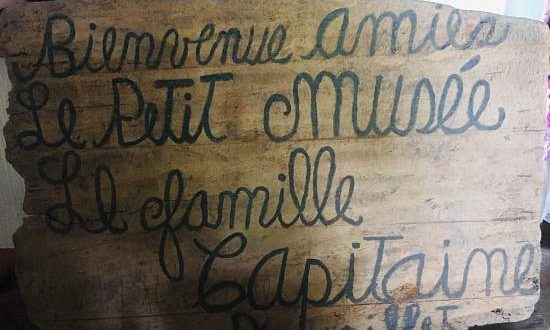 Bienvenue amies
Le Petit Musée
Le famille
Capitaine